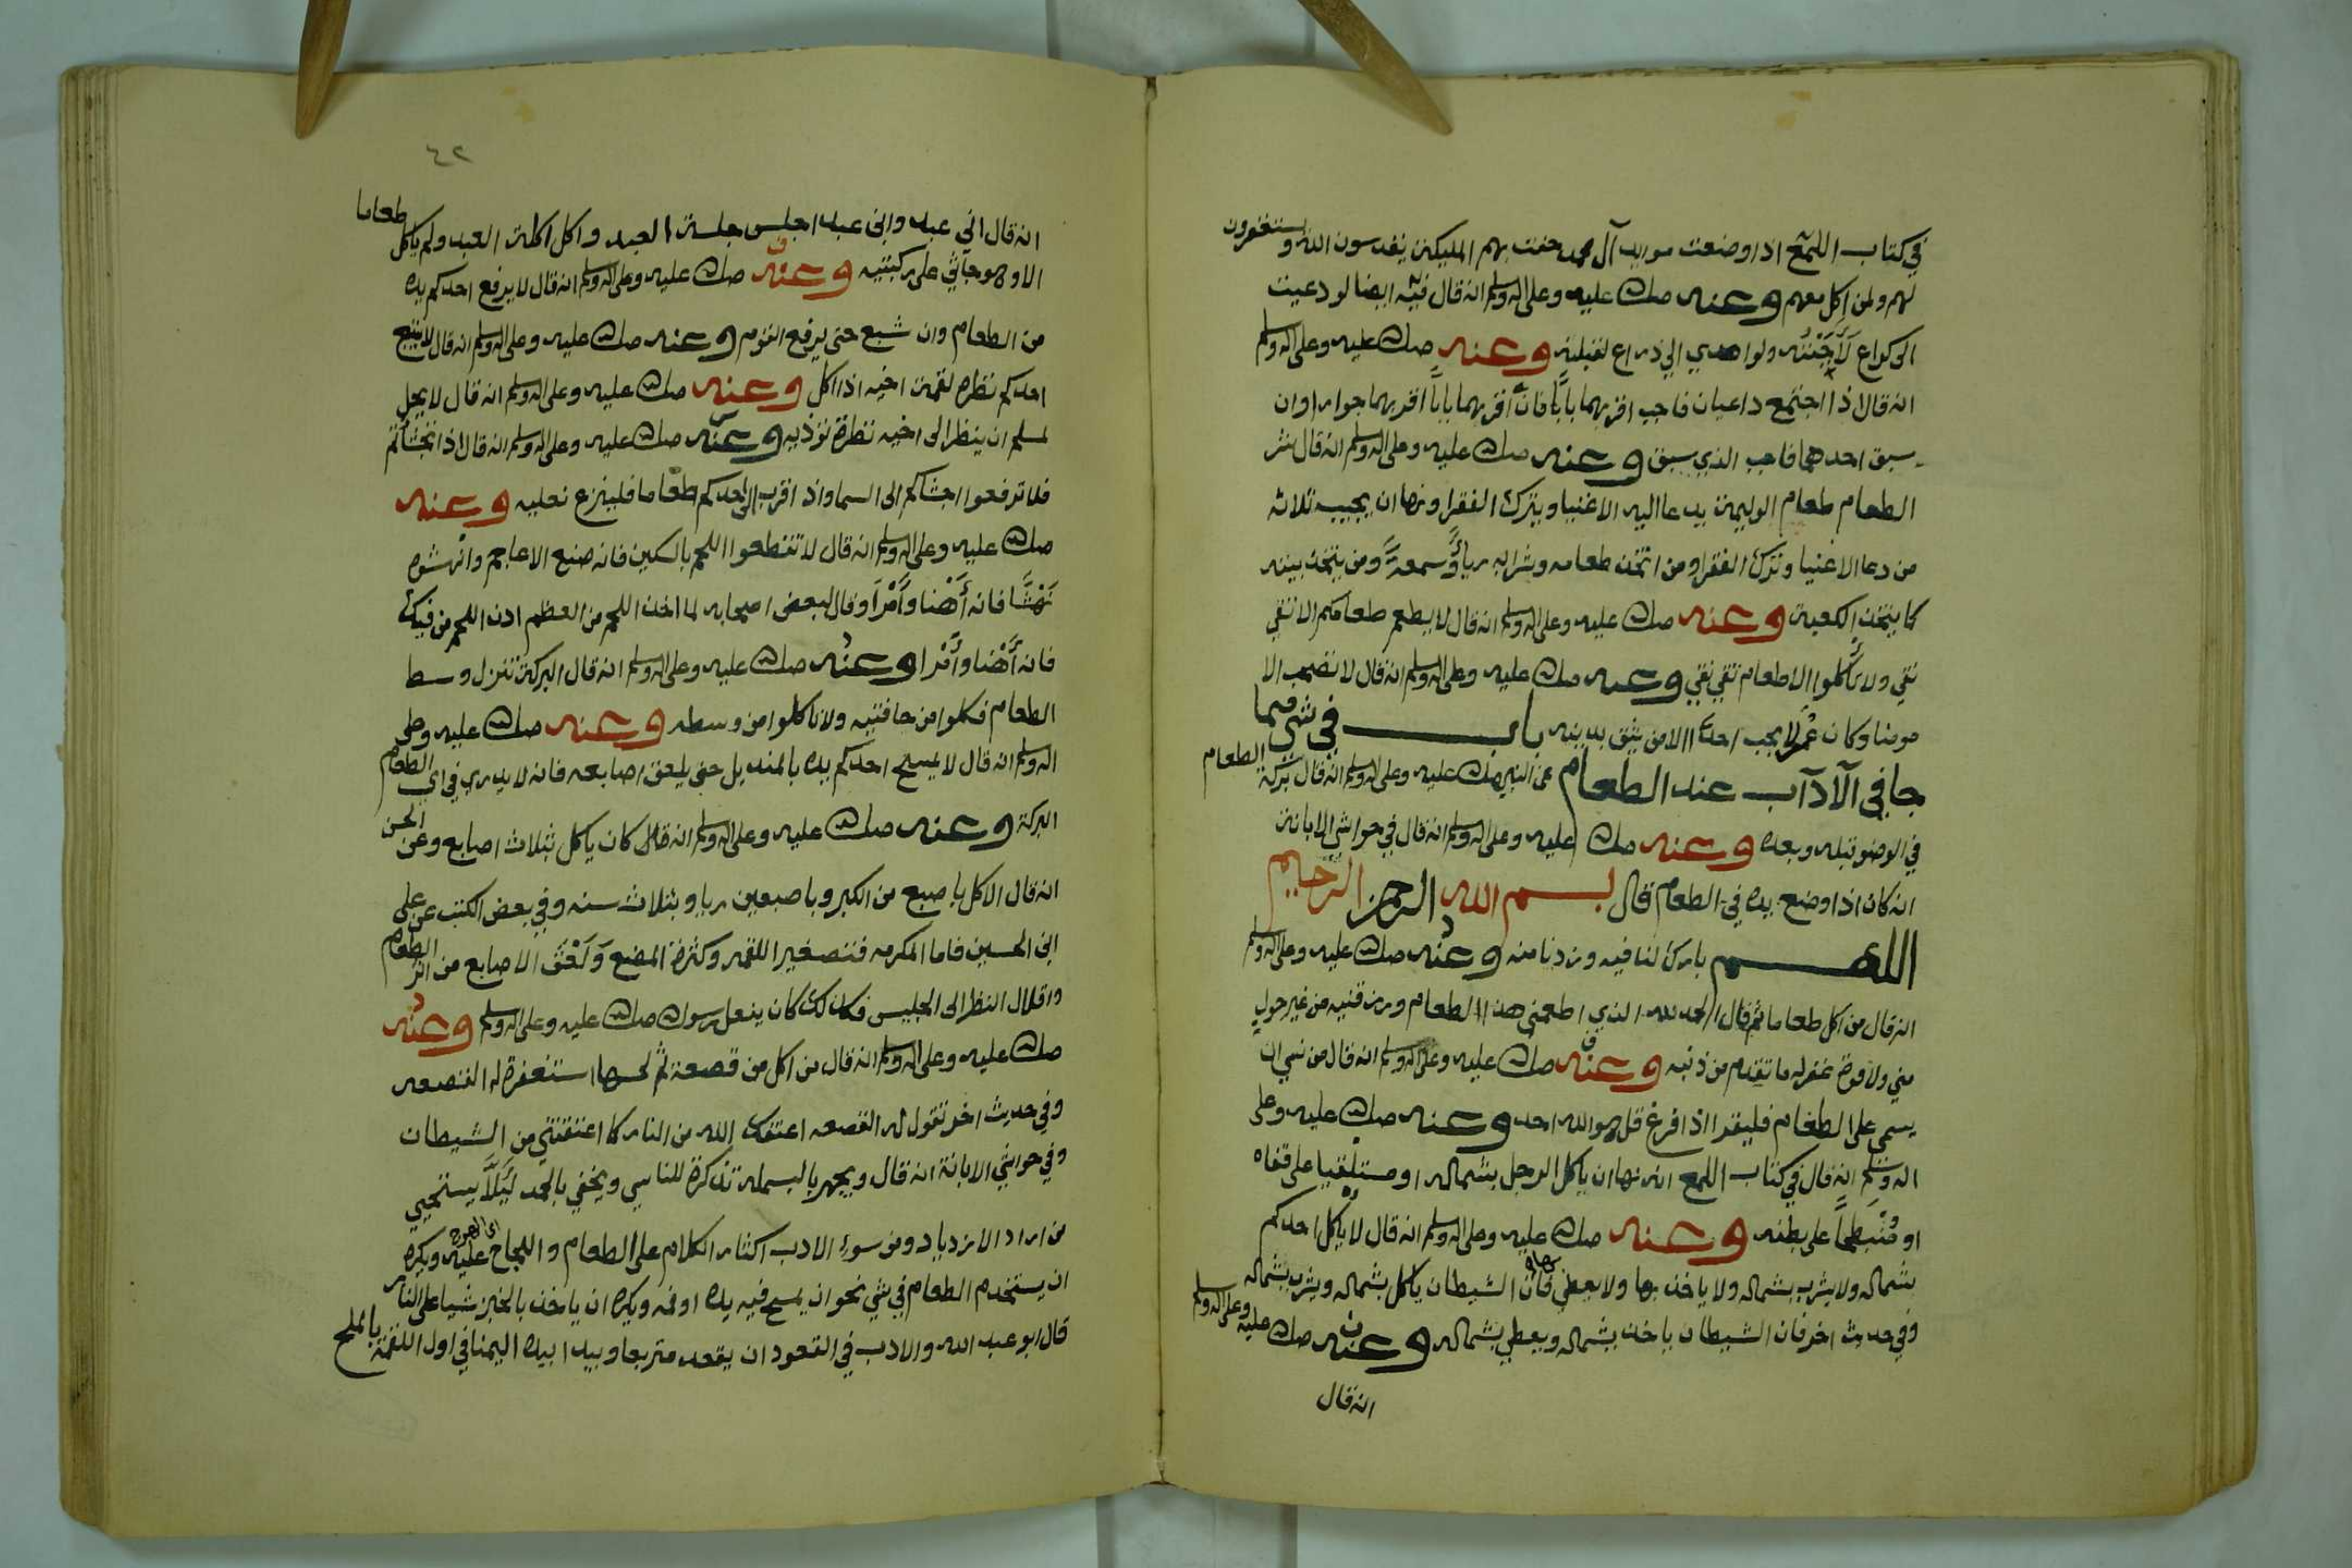 في كتاب اللمع اذا وضعت موايد آل محمد حفت بهم المليكة يقدسون الله ويستغفرون
لهم ولمن اكل معهم وعنه صلى الله عليه وعلى اله وسلم انه قال فيه ايضا لو دعيت
الى كراع لأجبته ولو اهدي الي ذراع لقبلته وعنه صلى الله عليه وعلى اله وسلم
انه قال اذا اجتمع داعيان فاجب اقربهما بابًا فان اقربهما بابًا اقربهما جوارا وان
سبق احدهما فاجب الذي سبق وعنه صلى الله عليه وعلى اله وسلم انه قال شر
الطعام طعام الوليمة يدعا اليه الاغنيا ويترك الفقرا ونها ان يجيب ثلاثه
من دعا الاغنيا وترك الفقرا ومن اتخذ طعامه وشرابه رياً وسمعةً ومن يتخذ بيته
كما يتخذ الكعبة وعنه صلى الله عليه وعلى اله وسلم انه قال لا يطعم طعامكم الا تقي
نقي ولا تأكلوا الا طعام تقي نقي وعنه صلى الله عليه وعلى اله وسلم انه قال لا تصحب الا
مومنا وكان عمر لا يجب احدا الا من يثق بدينه باب في شي مما
جا في الآداب عند الطعام عن النبي صلى الله عليه وعلى اله وسلم انه قال بركة الطعام
في الوضو قبله وبعده وعنه صلى الله عليه وعلى اله وسلم انه قال في حواشي الابانة
انه كان اذا وضع يده في الطعام قال بسم الله الرحمن الرحيم
اللهم بارك لنا فيه وزدنا منه وعنه صلى الله عليه وعلى اله وسلم
انه قال من اكل طعاما ثم قال الحمد لله الذي اطعمني هذا الطعام ورزقنيه من غير حول
مني ولا قوة غفر له ما تقدم من ذنبه وعنه صلى الله عليه وعلى اله وسلم انه قال من نسي ان
يسمى على الطعام فليقرا اذا فرغ قل هو الله احد وعنه صلى الله عليه وعلى
اله وسلم انه قال في كتاب اللمع انه نها ان ياكل الرجل بشماله او مستلقيا على قفاه
او منبطحًا على بطنه وعنه صلى الله عليه وعلى اله وسلم انه قال لا ياكل احدكم
بشماله ولا يشرب بشماله ولا ياخذ بها ولا يعطي بها فان الشيطان ياكل بشماله ويشرب بشماله
وفي حديث اخر فان الشيطان ياخذ بشماله ويعطي بشماله وعنه صلى الله عليه وعلى اله وسلم
انه قال
٤٢
انه قال اني عبد وابن عبد اجلس جلسة العبد واكل اكلة العبد ولم ياكل طعاما
الا وهو جاثي على ركبتيه وعنه صلى الله عليه وعلى اله وسلم انه قال لا يرفع احدكم يده
من الطعام وان شبع حتى يرفع القوم وعنه صلى الله عليه وعلى اله وسلم انه قال لا يتبع
احدكم نظره لقمة اخيه اذا اكل وعنه صلى الله عليه وعلى اله وسلم انه قال لا يحل
لمسلم ان ينظر الى اخيه نظرة توذيه وعنه صلى الله عليه وعلى اله وسلم انه قال اذا تجشأتم
فلا ترفعوا اجشاكم الى السما واذا قرب الى احدكم طعاما فلينزع نعليه وعنه
صلى الله عليه وعلى اله وسلم انه قال لا تقطعوا اللحم بالسكين فانه صنع الاعاجم وانهشوه
نَهْشًا فانه أهنا وأمرأ وقال لبعض اصحابه لما اخذ اللحم من العظم ادن اللحم من فيك
فانه أهنا وأمرا وعنه صلى الله عليه وعلى اله وسلم انه قال البركة تنزل وسط
الطعام فكلوا من حافتيه ولا تاكلوا من وسطه وعنه صلى الله عليه وعلى
اله وسلم انه قال لا يمسح احدكم يده بالمنديل حتى يلعق اصابعه فانه لا يدري في اي الطعام
البركة وعنه صلى الله عليه وعلى اله وسلم انه كان ياكل بثلاث اصابع وعن الحسن
انه قال الاكل باصبع من الكبر وباصبعين ريا وبثلاث سنه وفي بعض الكتب عن علي
ابن الحسين فاما المكرمه فتصغير اللقمه وكثرة المضغ وَلَعْق الاصابع من اثر الطعام
واقلال النظر الى الجليس فكذلك كان يفعل رسول الله صلى الله عليه وعلى اله وسلم وعنه
صلى الله عليه وعلى اله وسلم انه قال من اكل من قصعة ثم لحسها استغفرة له القصعه
وفي حديث اخر تقول له القصعه اعتقك الله من النار كما اعتقتني من الشيطان
وفي حواشي الابانة انه قال ويجهر بالبسمله تذكرة للناسي ويخفي بالحمد لَيِلَّا يستحيي
من اراد الازدياد ومن سوء الادب اكثار الكلام على الطعام واللجاج عليه ويكره
ان يستخدم الطعام في شي نحو ان يمسح فيه يده او فمه ويكره ان ياخذ بالخبز شيا على النار
قال ابو عبد الله والادب في القعود ان يقعد متربعا ويبدا بيده اليمنا في اول اللقمة بالملح